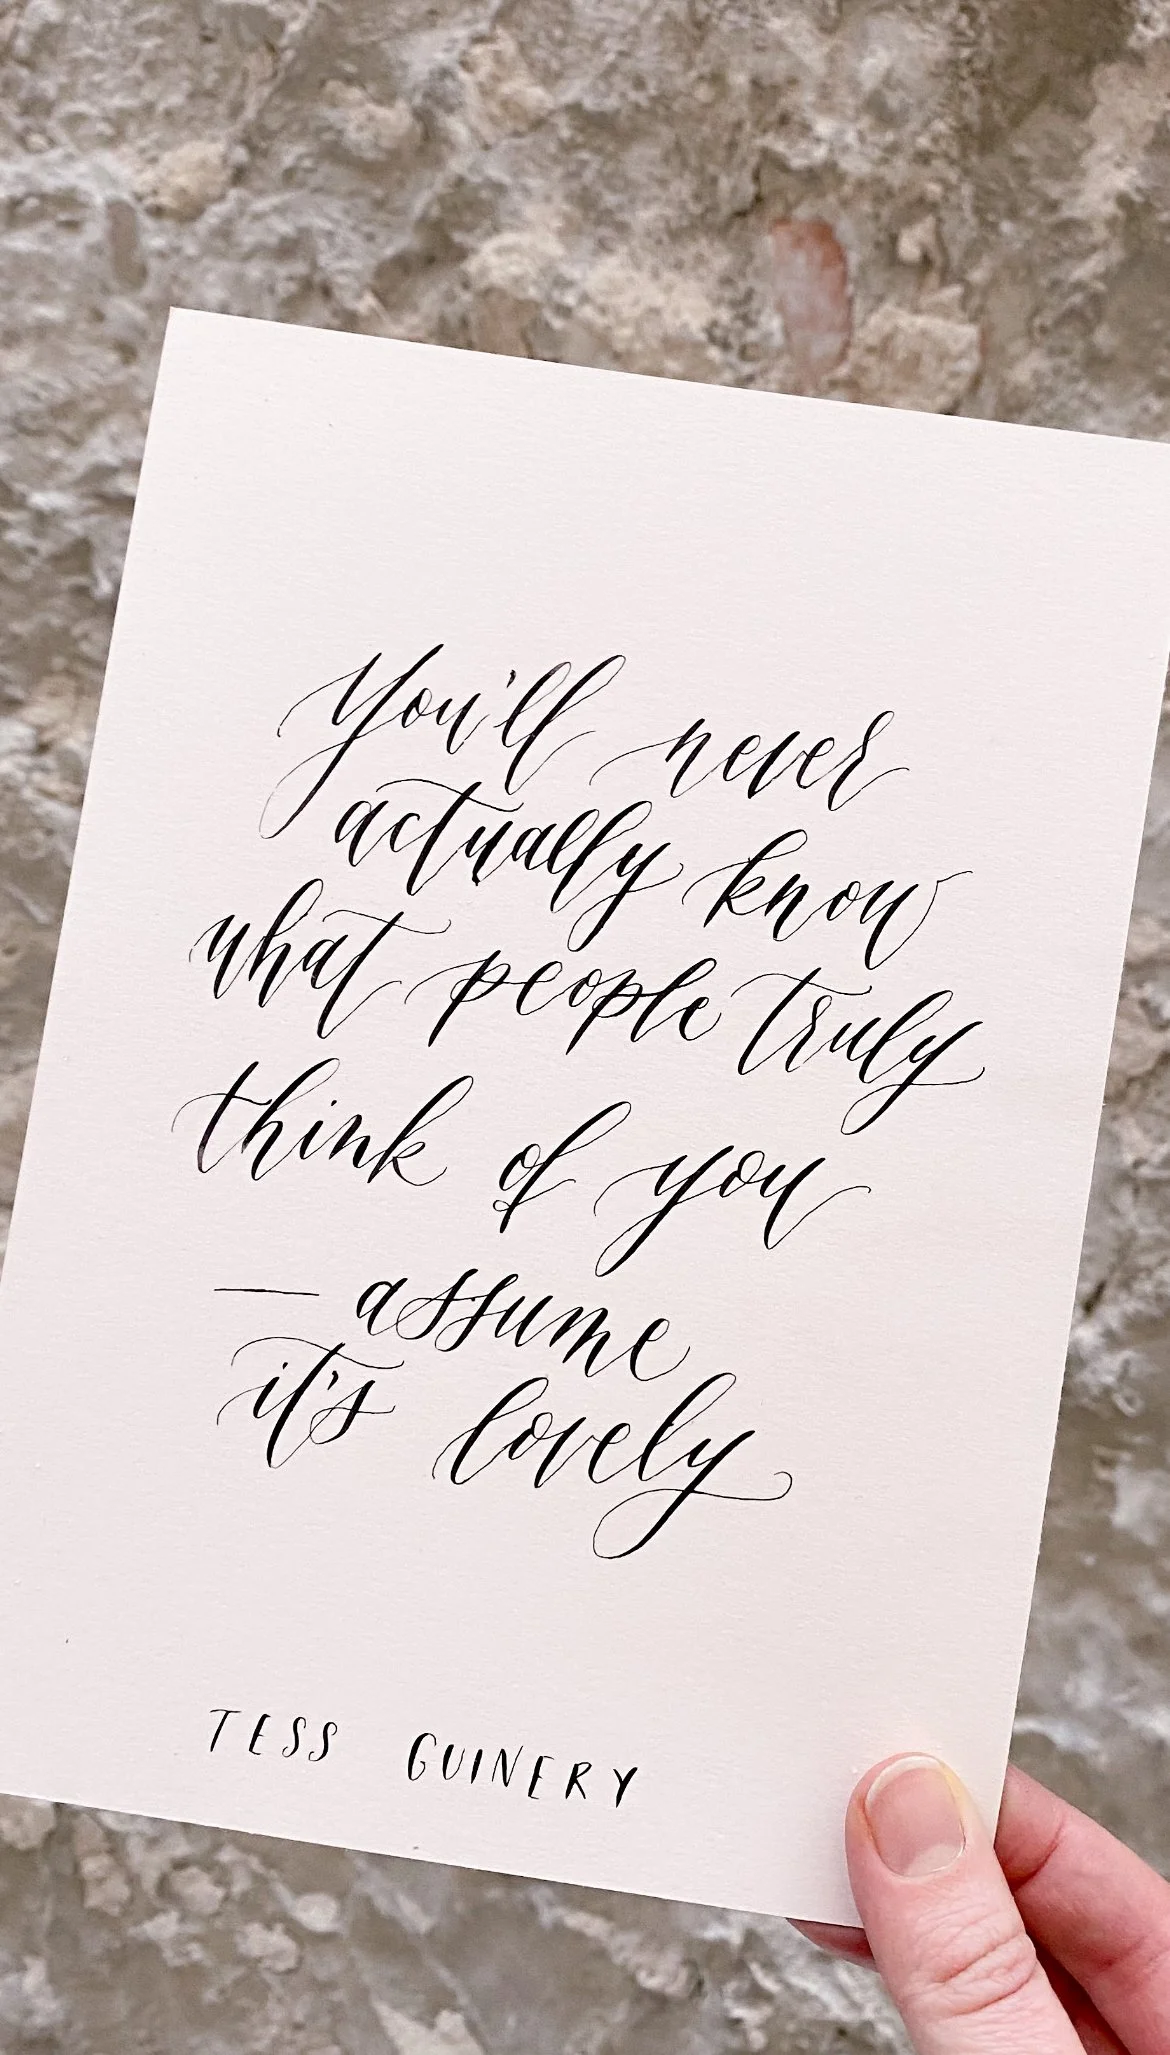 You'll never
actually know
what people truly
think of you
— assume
it's lovely
TESS GUINERY